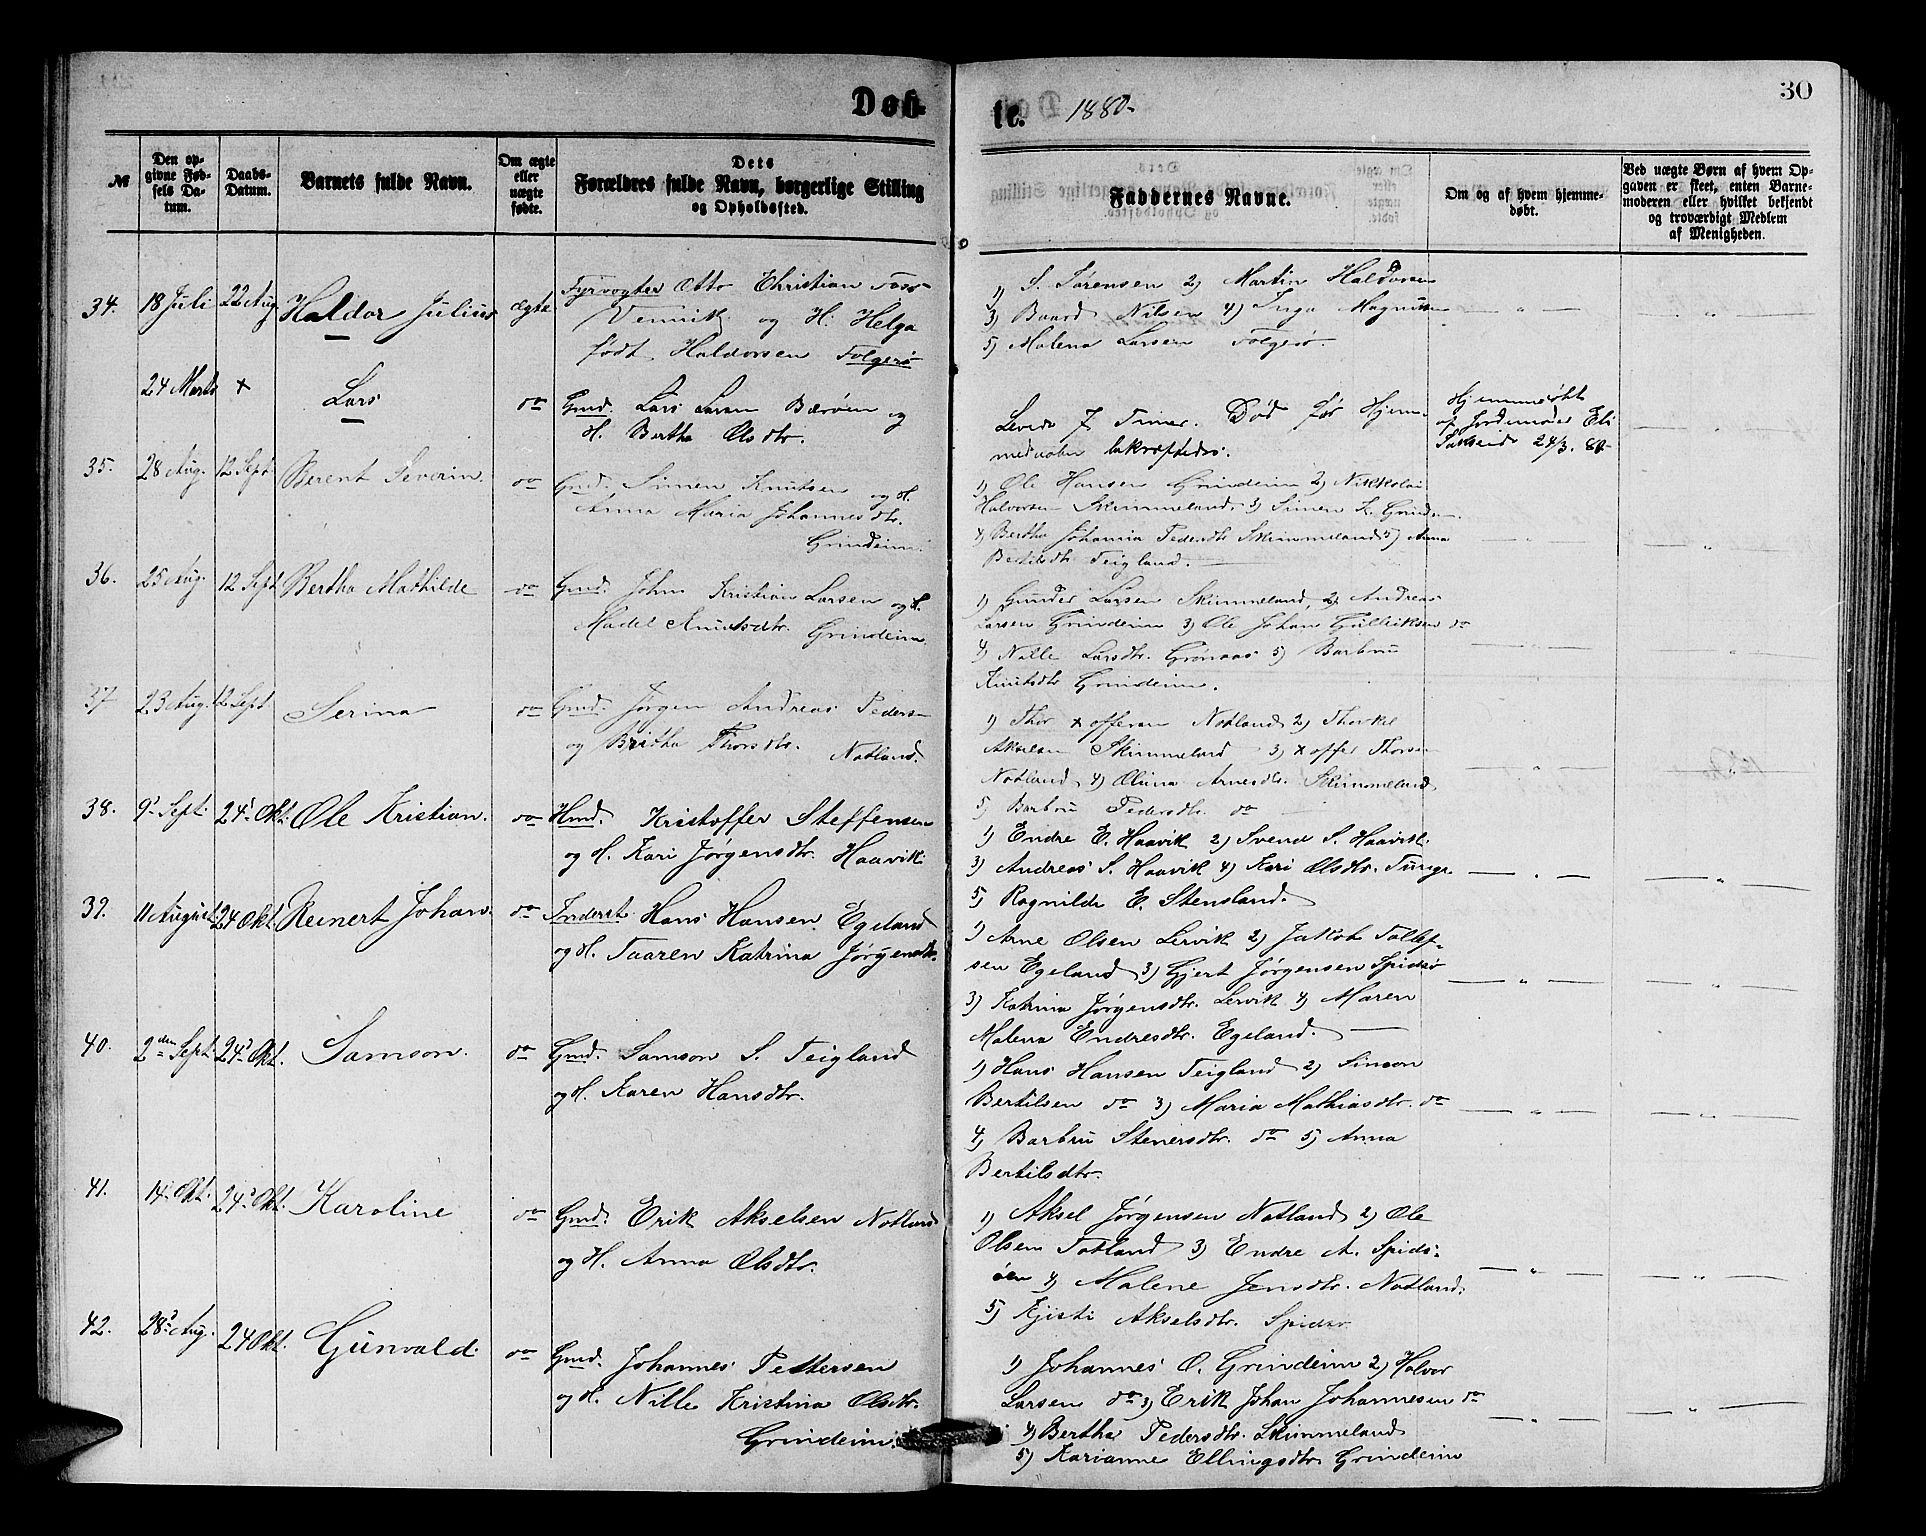 Døb-
te. 1880-
30
№
Den op-
givne Fød-
sels Da-
tum.
Daabs-
Datum.
Barnets fulde Navn.
Om ægte
eller
uægte
fødte.
Dets
Forældres fulde Navn, borgerlige Stilling
og Opholdssted.
Faddernes Navne.
Om og af hvem hjemme-
døbt.
Ved uægte Børn af hvem Op-
gaven er skeet, enten Barne-
moderen eller hvilket bekjendt
og troværdigt Medlem
af Menigheden.
34. 18 Juli 22 Aug Haldor Julius ægte
Fyrvogter Otto Christian
Vennik og H. Helga
født Haldorsen Folgerø
1) S. Sørensen 2) Martin Haldorsen
3) Baard Nilsen 4) Inga Magnussen
5) Malena Larsen Folgerø.
24 Marts + Lars do
Gmd. Lars Larsen Bærøen og
H. Bertha Olsdtr.
Levede 7 Timer. Død før Hjem-
medaaben bekræftedes.
Hjemmedøbt
af Jordemoder Eli
24/3. 80-
35. 28 Aug. 12 Sept Berent Severin. do
Gmd. Simen Knutsen og H.
Anna Maria Johannesdtr.
Grindeim.
1) Ole Hansen Grindeim 2) Nikkolai
Halvorsen Skimmeland 3) Simen L. Grindeim
4) Bertha Johanna Pedersdtr Skimmeland 5) Anna
Bertilsdtr Teigland.
36. 25 Aug. 12 Sept Bertha Mathilde do
Gmd. John Kristian Larsen og H.
Madel Knutsdtr. Grindeim
1) Gunder Larsen Skimmeland, 2) Andreas
Larsen Grindeim 3) Ole Johan Gulleiksen do
4) Nille Larsdtr. Grønaas 5) Barbru
Knutsdtr Grindeim.
37 23 Aug. 12 Sept Serina do
Gmd. Jørgen Andreas Pedersen
og Britha Thorsdtr. Notland.
1) Thor +offersen Notland 2) Thorkel
Akselsen Skimmeland 3) +offer Thorsen
Notland 4) Olina Arnesdtr. Skimmeland
5) Barbru Pedersdtr. do
38. 9' Sept. 24' Okt. Ole Kristian. do
Hmd. Kristoffer Steffensen
og H. Kari Jørgensdtr. Haavik.
1) Endre E. Haavik 2) Svend S. Haavik.
3) Andreas S. Haavik 4) Kari Olsdtr.
5) Ragnilde E. Stensland.
39. 11 August. 24 Okt. Reinert Johan. do
Inderst Hans Hansen Egeland
og H. Taaren Katrina Jørgensdtr.
1) Arne Olsen Lervik 2) Jakob Tollef-
sen Egeland 3) Gjert Jørgensen Spidsø
3) Katrina Jørgensdtr. Lervik 4) Maren
Malena Endresdtr. Egeland.
40. 2den Sept. 24' Okt. Samson. do
Gmd. Samson S. Teigland
og H. Karen Hansdtr.
1) Hans Hansen Teigland 2) Simeon
Bertilsen do 3) Maria Mathiasdtr. do
4) Barbru Stenersdtr. do 5) Anna
Bertilsdtr.
41. 14' Okt. 24' Okt. Karoline do
Gmd. Erik Akselsen Notland
og H. Anna Olsdtr.
1) Aksel Jørgensen Notland 2) Ole
Olsen Totland 3) Endre A. Spids-
øen 4) Malene Jensdtr. Notland.
5) Kjisti Akselsdtr. Spidsø
42. 28' Aug. 24 Okt. Gunvald. do
Gmd. Johannes Pettersen
og H. Nille Kristina Olsdtr.
Grindeim.
1) Johannes O. Grindeim 2) Halvor
Larsen do 3) Erik Johan Johannesen do
4) Bertha Pedersdtr. Skimmeland
5) Karianne Ellingsdtr. Grindeim